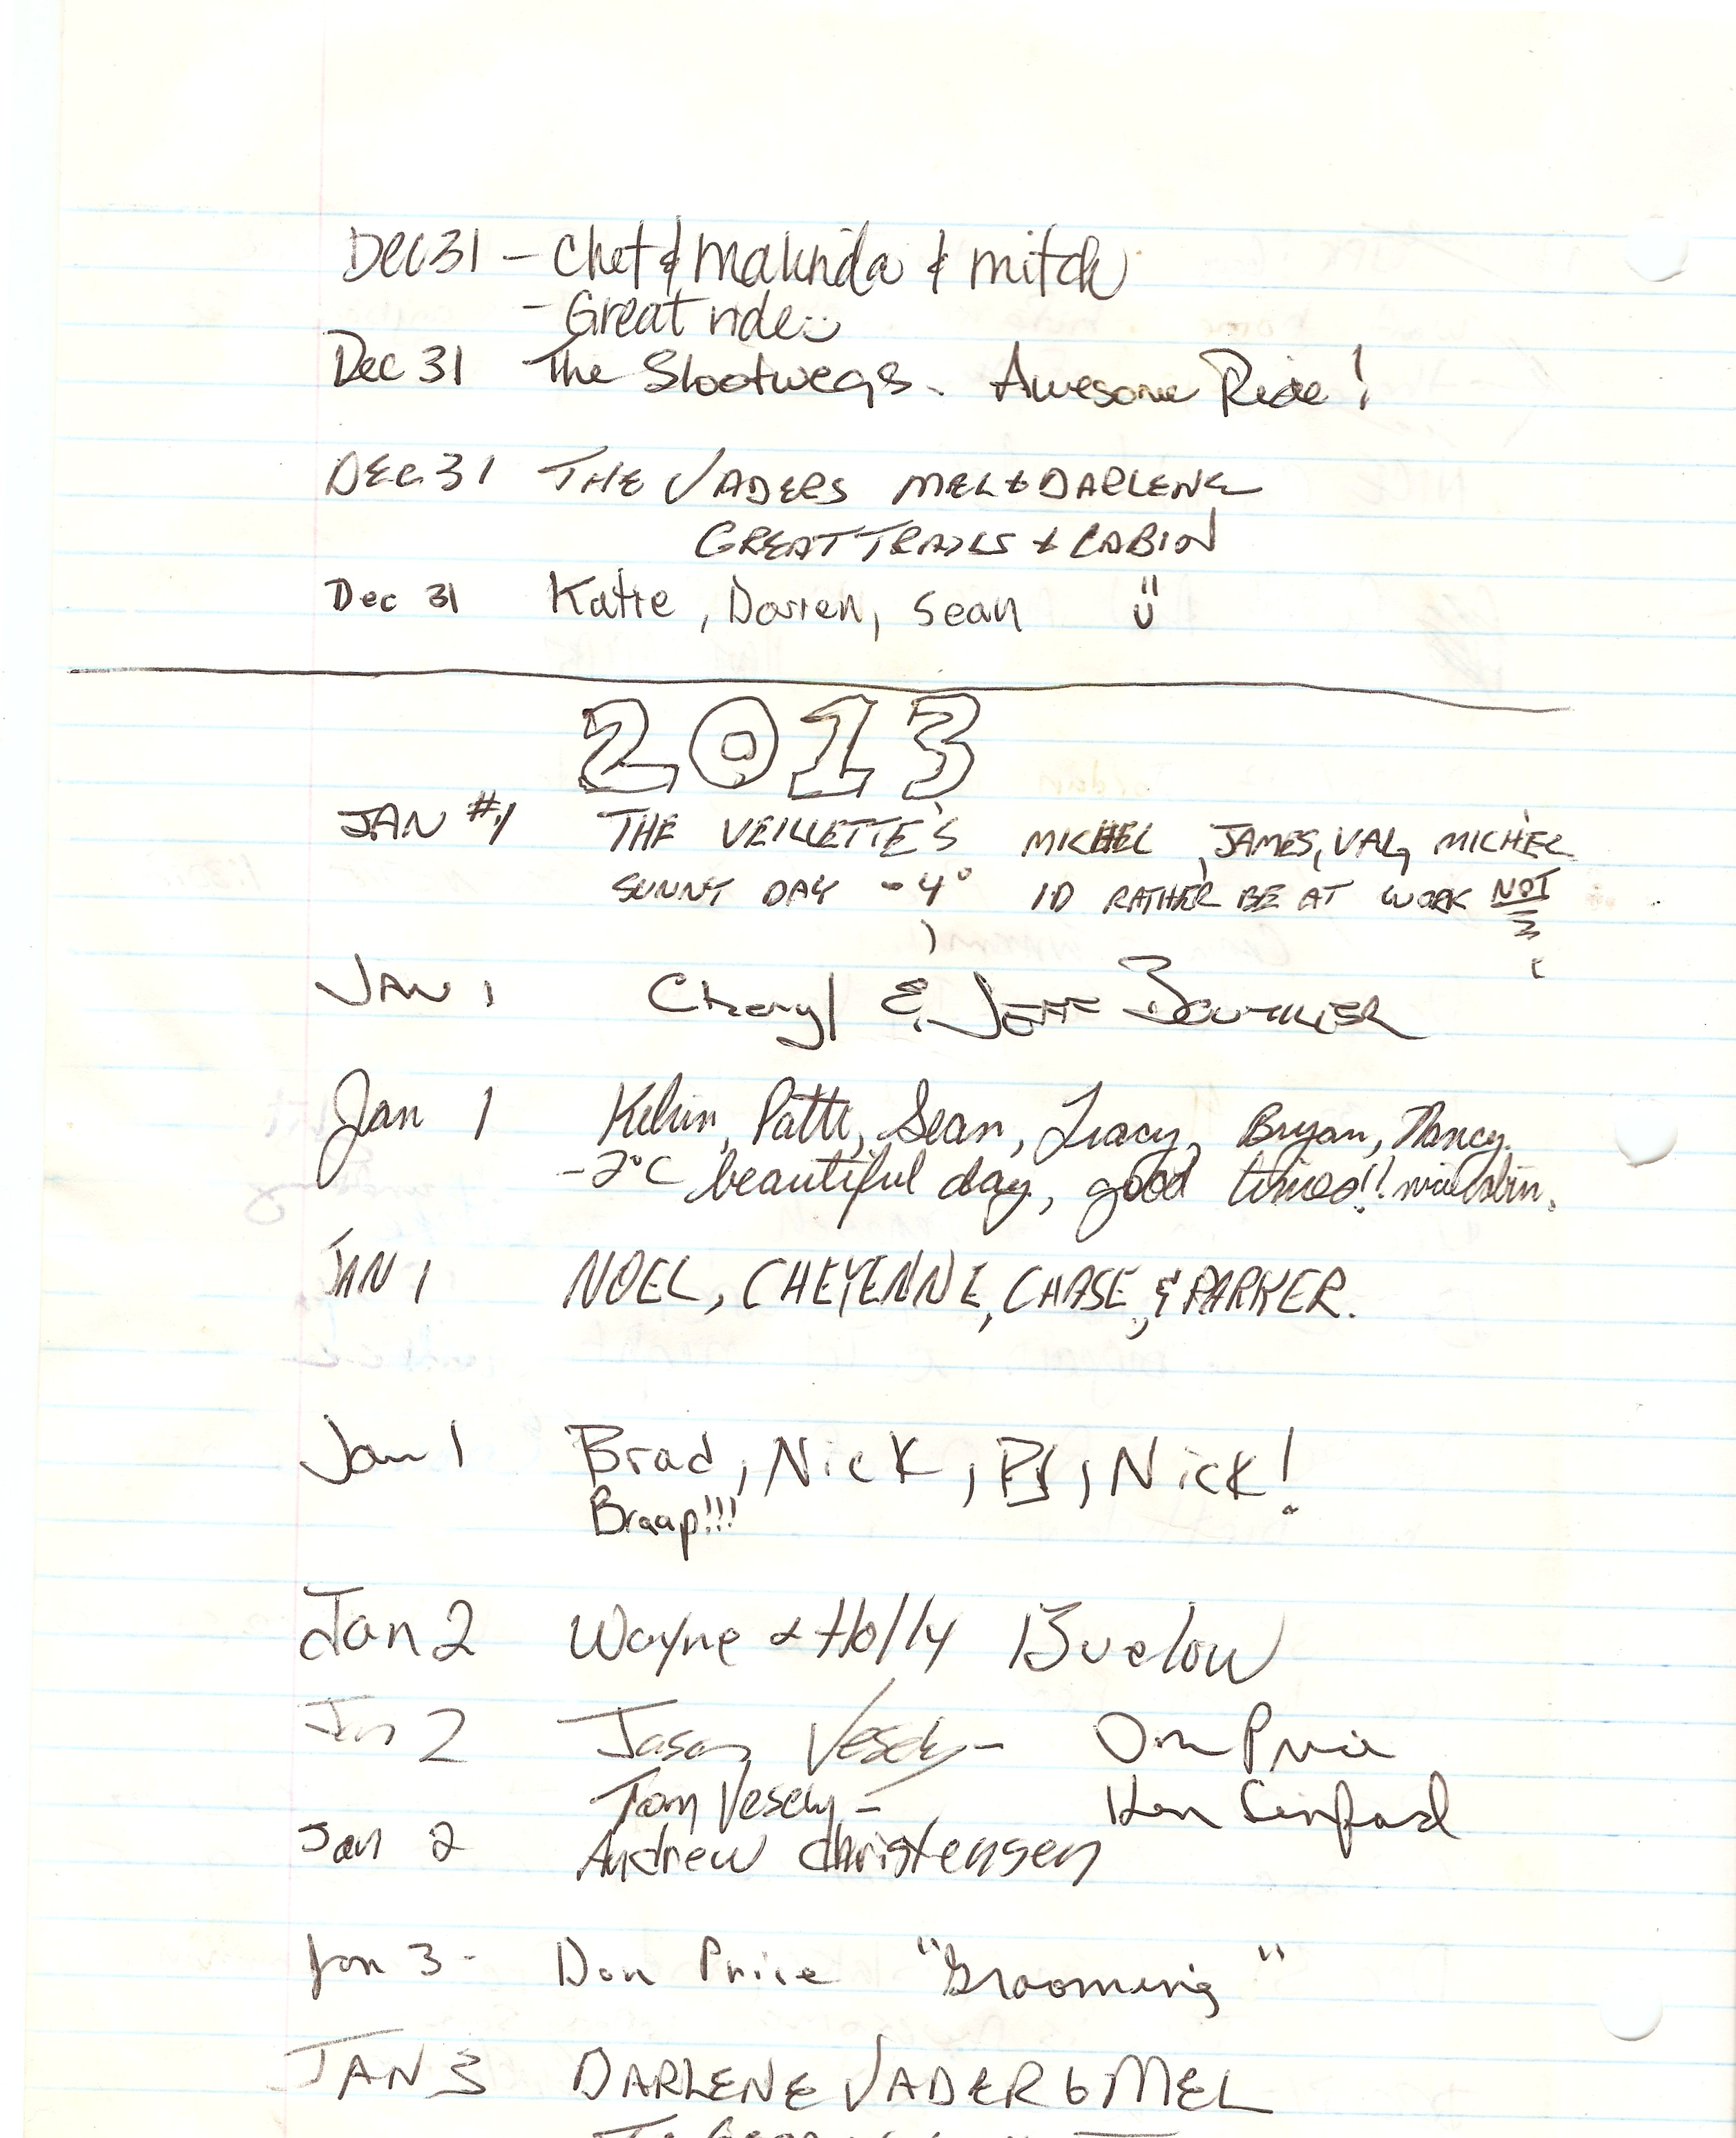 Dec 31 - Chet & Malinda & Mitch
- Great ride
Dec 31 The Slootwegs. Awesome Ride!
DEC 31 THE VADERS MEL & DARLENE
GREAT TRAILS & CABIN
Dec 31 Katie, Darren, Sean
2013
JAN #1 THE VEILLETTE'S MICHEL, JAMES, VAL, MICHEL
SUNNY DAY -4° ID RATHER BE AT WORK NOT
JAN 1 Cheryl & JEFF
Jan 1 Kelvin, Patti, Sean, Tracy, Bryan, Nancy.
-2°C beautiful day, good times!! nice cabin.
JAN 1 NOEL, CHEYENNE, CHASE, & PARKER.
Jan 1 Brad, Nick, PJ, Nick!
Braap!!!
Jan 2 Wayne & Holly Buelow
Jan 2 Jason Vesely - Don Price
Tom Vesely - Ken
Jan 2 Andrew Christensen
Jan 3 - Don Price "Grooming"
JAN 3 DARLENE VADER & MEL